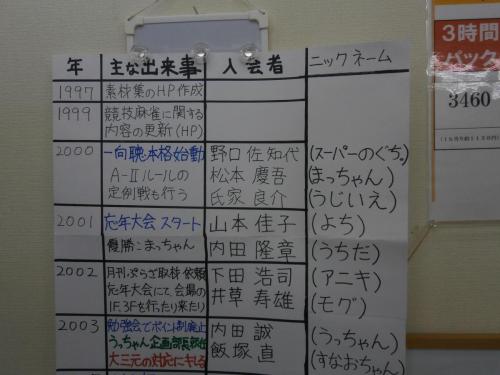 年 主な出来事 入会者 ニックネーム
1997 素材集のHP作成
1999 競技麻雀に関する
内容の更新(HP)
2000 一向聴本格始動 野口佐知代 (スーパーのぐち。)
A-Ⅱルールの 松本慶吾 (まっちゃん)
定例戦も行う 氏家良介 (うじいえ)
2001 忘年大会スタート 山本佳子 (よち)
優勝:まっちゃん 内田隆章 (うちだ)
2002 月刊ぷらざ取材依頼 下田浩司 (アニキ)
忘年大会にて、会場の 井草寿雄 (モグ)
1F、3Fを行ったり来たり
2003 勉強会でポイント制廃止 内田誠 (うっちゃん)
うっちゃん企画部長就任 飯塚直 (すなおちゃん)
大三元の対応にキレる
3時間
パック
3460